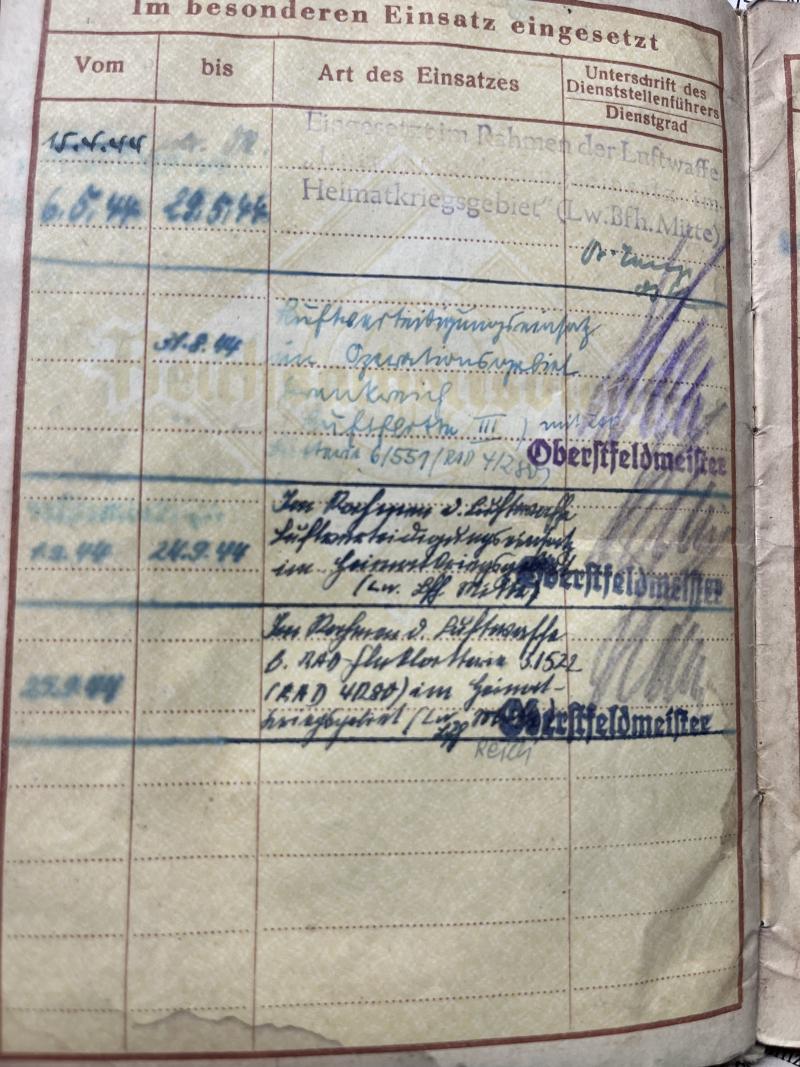 Im besonderen Einsatz eingesetzt
Vom
bis
Art des Einsatzes
Unterschrift des
Dienststellenführers
Dienstgrad
15.4.44
Eingesetzt im Rahmen der Luftwaffe
im
6.5.44
29.5.44
Heimatkriegsgebiet" (Lw.Bfh.Mitte)
Luftverteidigungseinsatz
31.8.44
im Operationsgebiet
Frankreich
Luftflotte III)
6/551/RAD 4/280)
Oberstfeldmeister
Im Rahmen d. Luftwaffe
Luftverteidigungseinsatz
1.9.44
24.9.44
im Heimatkriegsgebiet
(Lw. Bfh. Mitte)
Oberstfeldmeister
Im Rahmen d. Luftwaffe
b. RAD Flakbatterie
25.9.44
(RAD 4/280) im Heimat-
kriegsgebiet (Lw.
Oberstfeldmeister
Reich